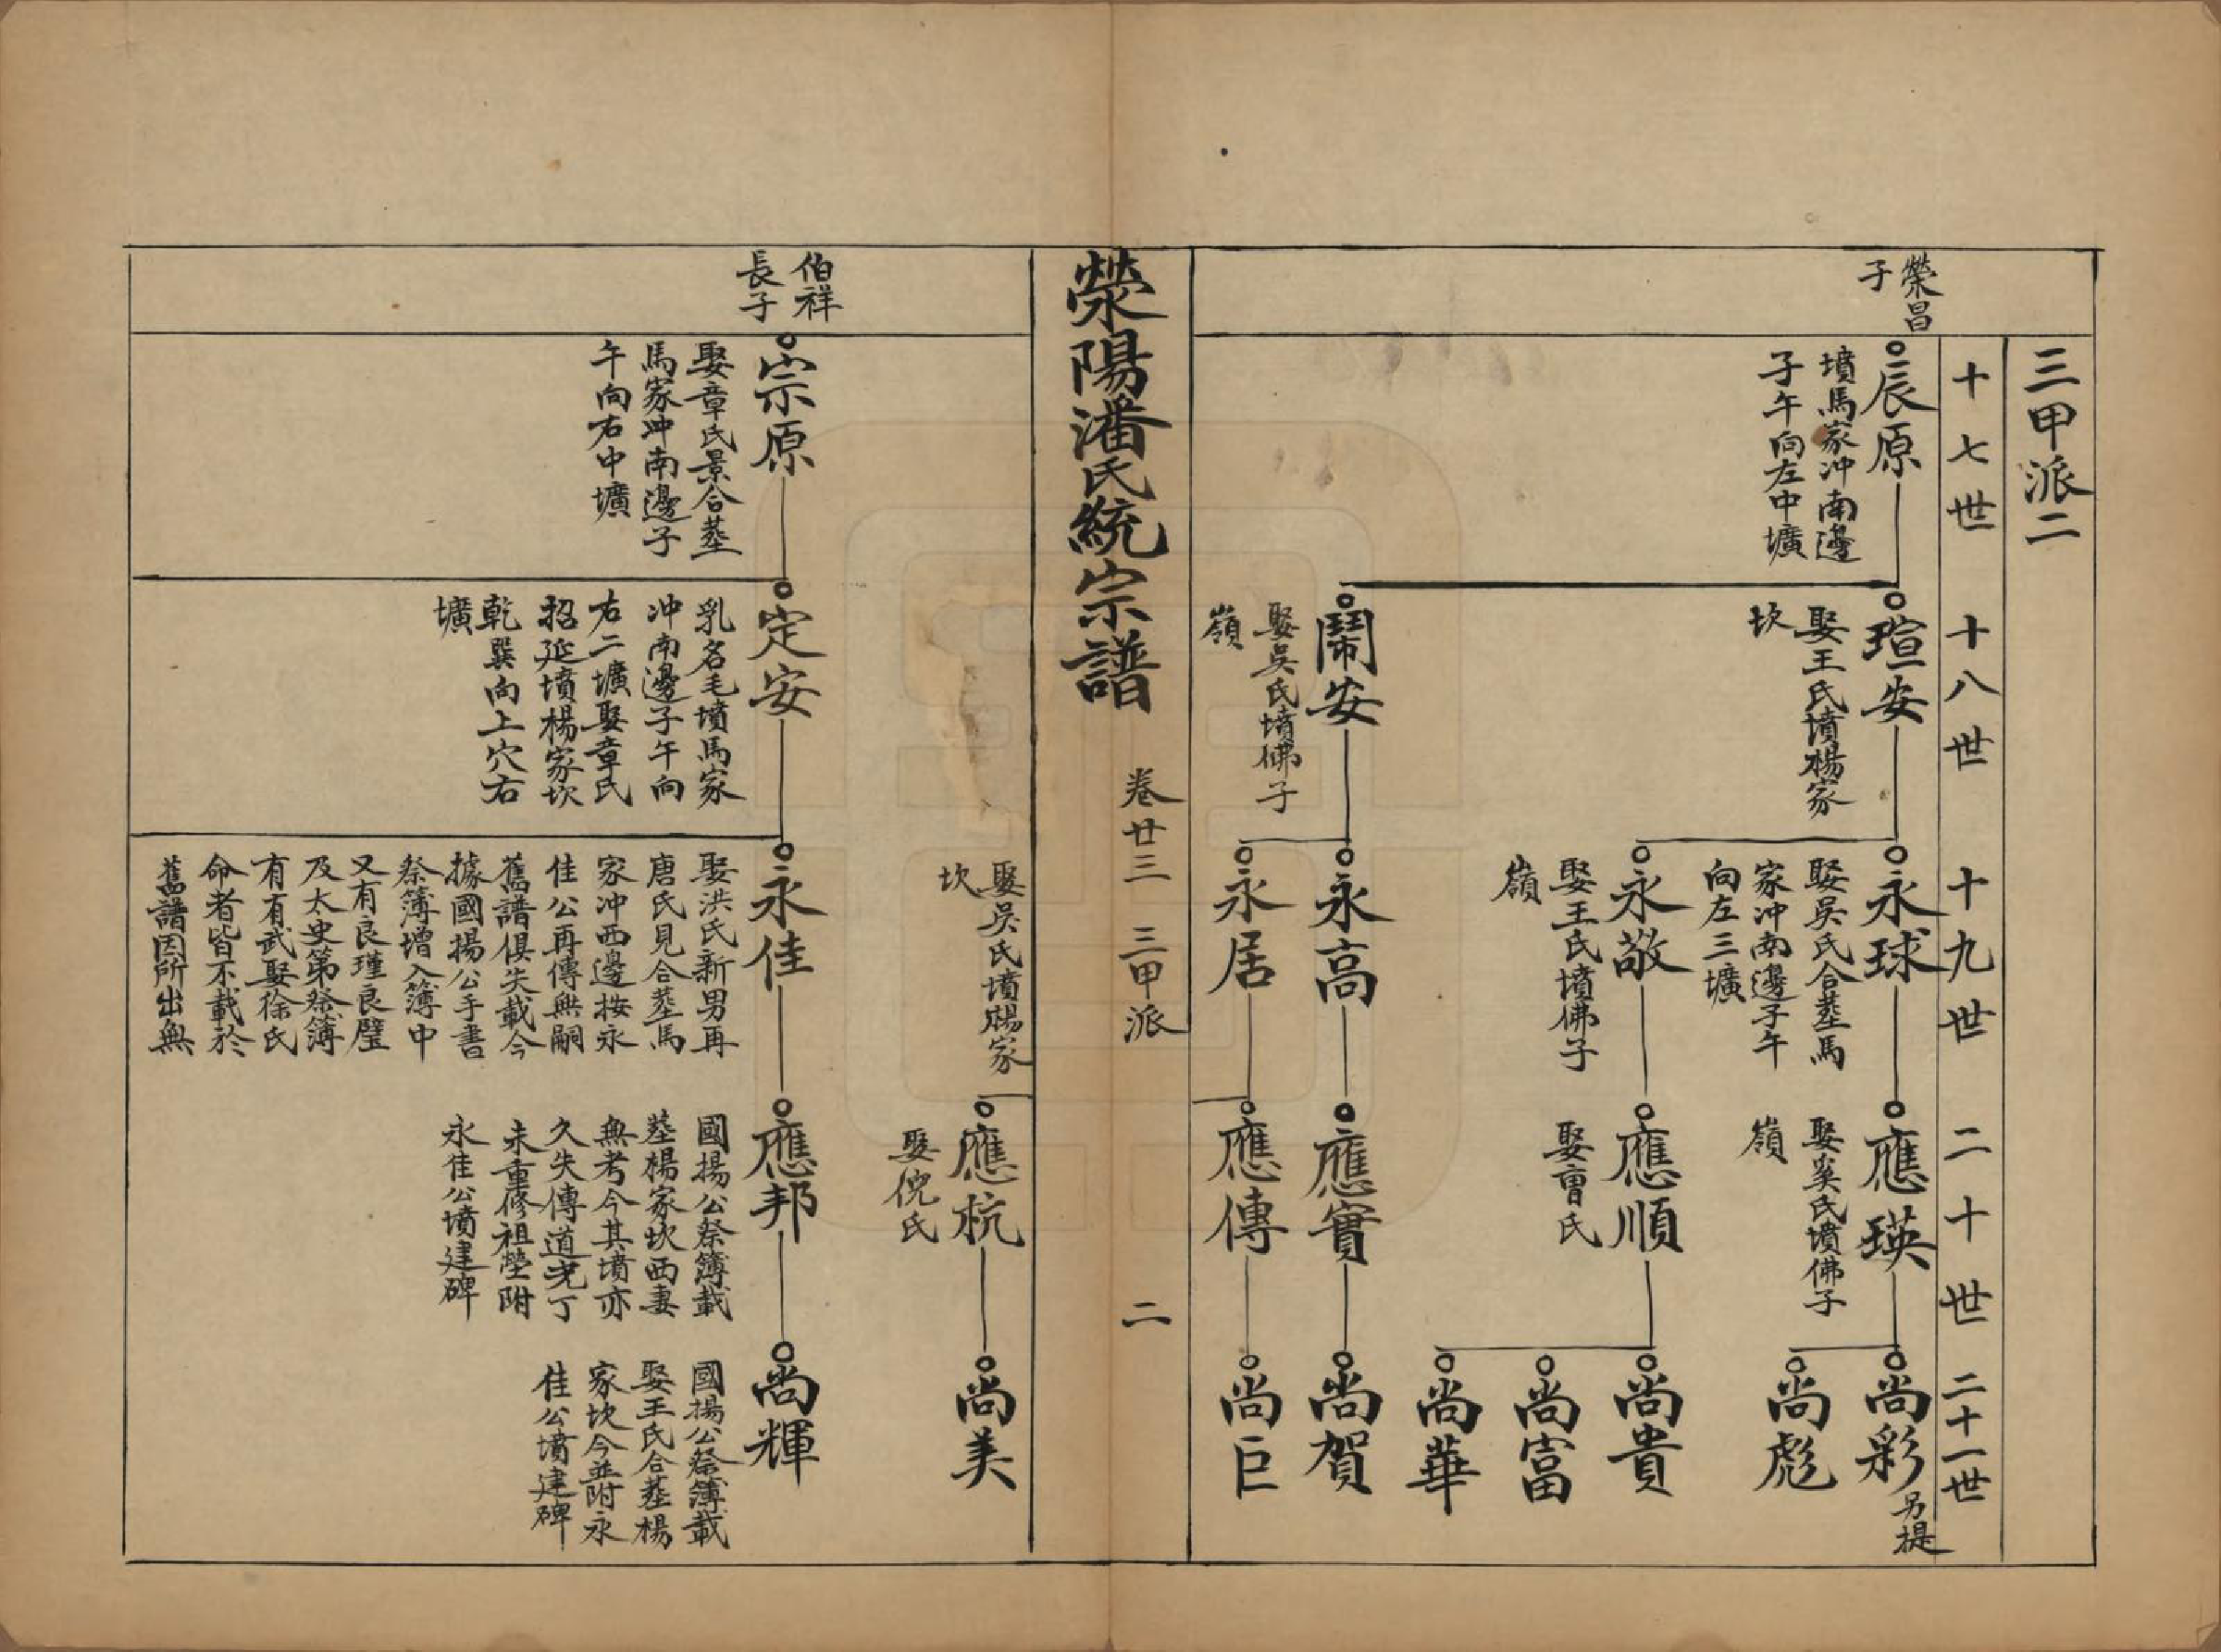 三甲派二
十七世
十八世
十九世
二十世
二十一世
榮昌
子
辰原
墳馬家冲南邊
子午向左中壙
瑄安
娶王氏墳楊家
坎
永球
娶吳氏合塟馬
家冲南邊子午
向左三壙
應瑛
娶奚氏墳佛子
嶺
尚彩
另提
尚彪
永敬
娶王氏墳佛子
嶺
應順
娶曺氏
尚貴
尚富
尚華
鬧安
娶吳氏墳佛子
嶺
永高
應實
尚賀
永居
應傳
尚巨
滎陽潘氏統宗譜
卷廿三
三甲派
二
娶吳氏墳楊家
坎
應杭
娶倪氏
尚美
伯祥
長子
宗原
娶章氏景合塟
馬家冲南邊子
午向右中壙
定安
乳名毛墳馬家
冲南邊子午向
右二壙娶章氏
招延墳楊家坎
乾巽向上穴右
壙
永佳
娶洪氏新男再
唐氏見合塟馬
家冲西邊按永
佳公再傳無嗣
舊譜俱失載今
據國揚公手書
祭簿增入簿中
又有良瑾良璧
及太史第祭簿
有有武娶徐氏
命者皆不載於
舊譜因所出無
應邦
國揚公祭簿載
塟楊家坎西妻
無考今其墳亦
久失傳道光丁
未重修祖塋附
永佳公墳建碑
尚輝
國揚公祭簿載
娶王氏合塟楊
家坎今並附永
佳公墳建碑